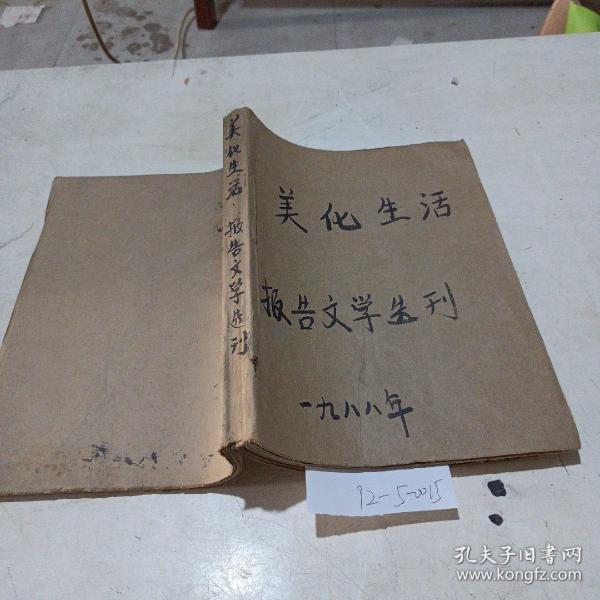 美化生活
报告文学选刊
一九八八年
美化生活·报告文学选刊
12-5-0015
孔夫子旧书网
www.kongfz.com